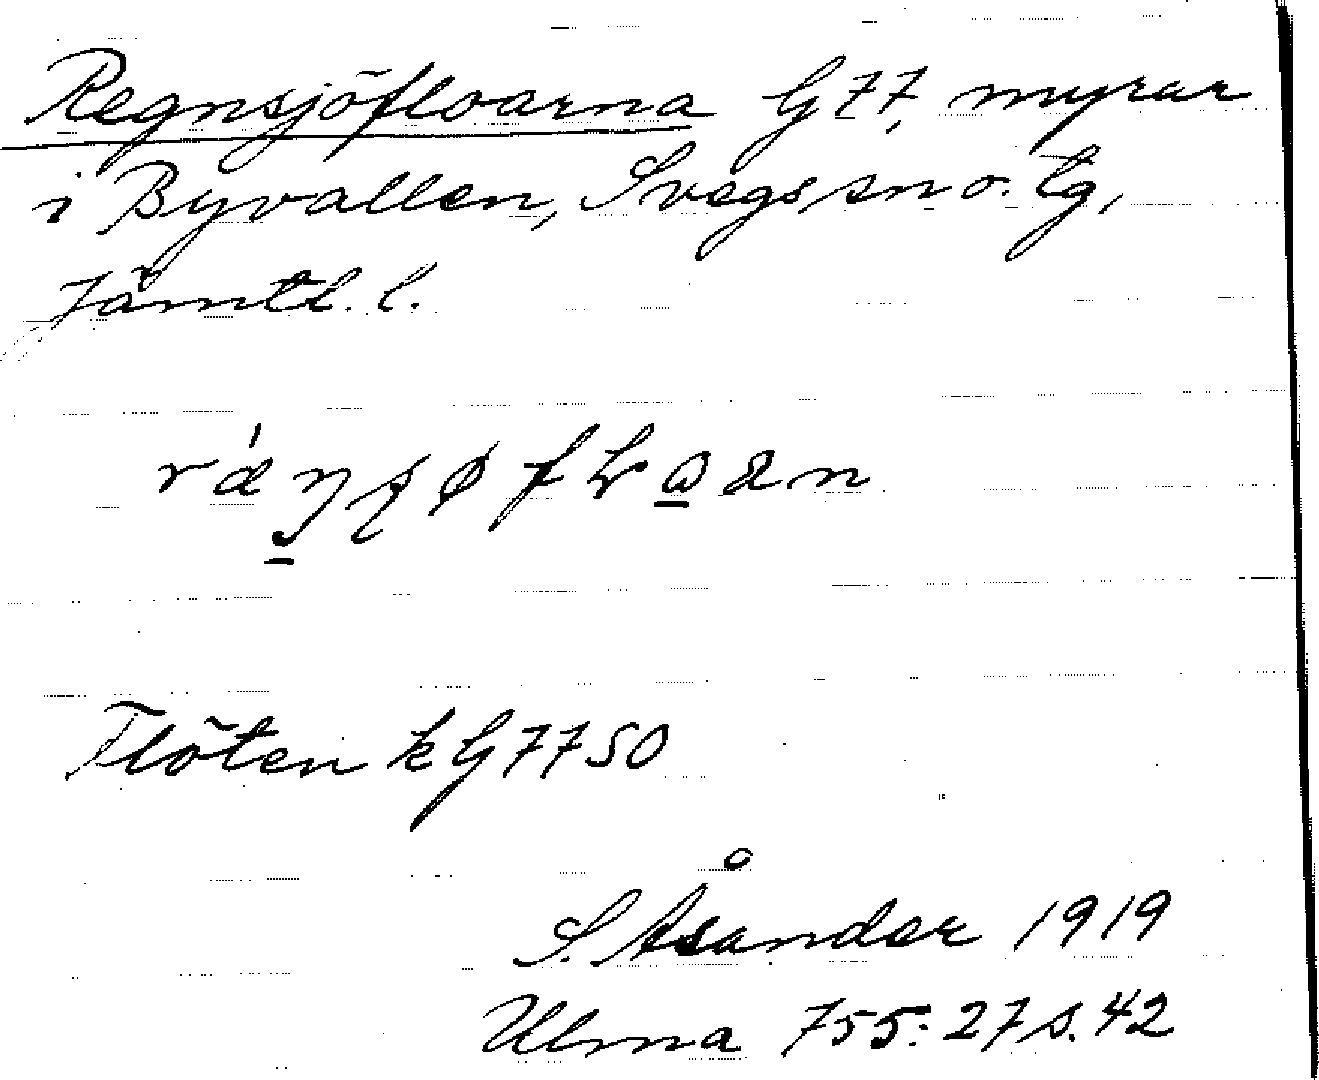 Regnsjöfloarna G77, myrar
i Byvallen, Svegs sn o. tg,
Jämtl. l.
Flöten kG7750
S. Åsander 1919
Ulma 755:27 s. 42